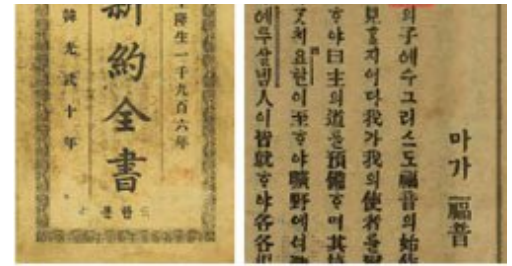 降生一千九百六年
新約全書
韓光武十年
마가 福音
의子예수그리스도福音의始
見ᄒᆞᆯ지어다我가我의使者를
ᄒᆞ야曰主의道를預備ᄒᆞ며其
치요한이至ᄒᆞ야曠野에셔
예루살넴人이皆就ᄒᆞ야各各